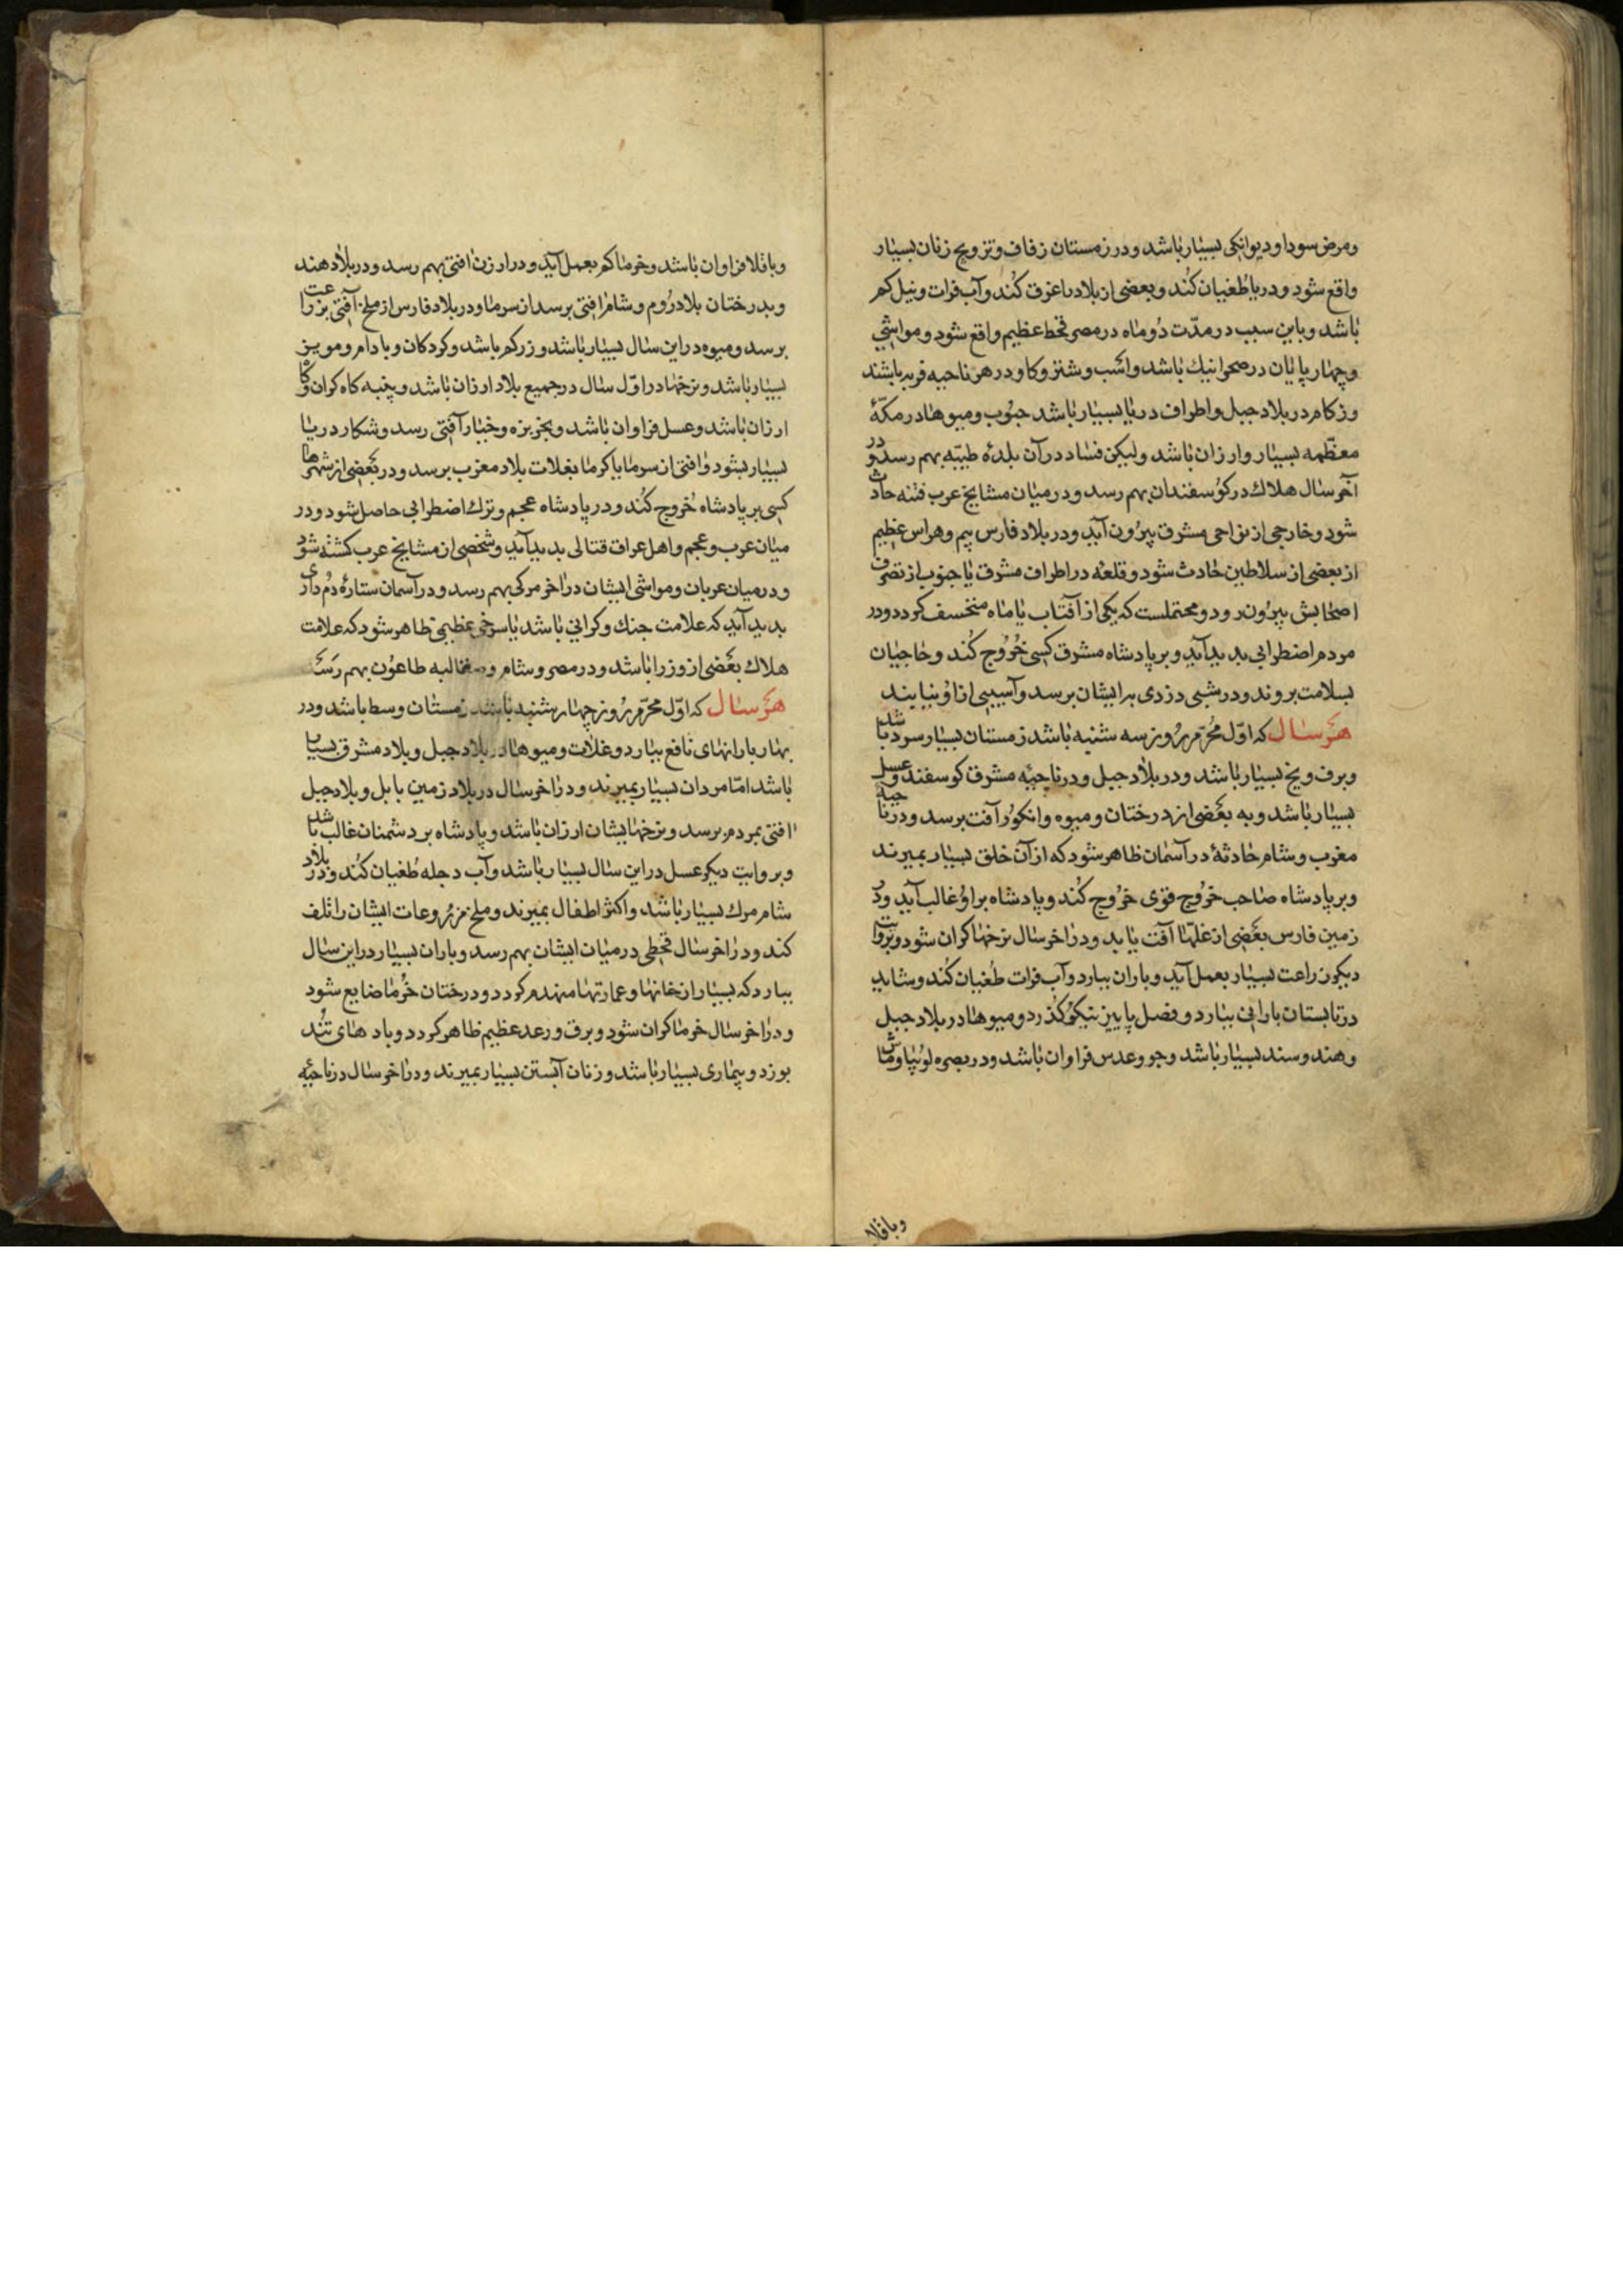 ومرض سودا ودیوانکی بسیار باشد ودر زمستان زفاف وتزویج زنان بسیار
واقع شود ودریا طغیان کند وبعضی از بلاد را غرق کند وآب فرات ونیل کم
باشد وباین سبب در مدّت دو ماه در مصر قحط عظیم واقع شود ومواشی
وچهار پایان در صحرا نیك باشد واسب وشتر وکاو در هر ناحیه فربه باشند
وزکام در بلاد جبل واطراف دریا بسیار باشد جنوب ومیوها در مکّهٔ
معظّمه بسیار وارزان باشد ولیکن فساد در آن بلدهٔ طیّبه بهم رسد ودر
آخر سال هلاك در کوسفندان بهم رسد ودر میان مشایخ عرب فتنه حادث
شود وخارجی از نواحی مشرق بیرون آید ودر بلاد فارس بیم وهراس عظیم
از بعضی از سلاطین حادث شود وقلعه در اطراف مشرق یا جنوب از تصرف
اصحابش بیرون رود ومحتملست که یکی از آفتاب یا ماه منخسف کردد ودر
مردم اضطرابی پدید آید وبر پادشاه مشرق کسی خروج کند وحاجیان
بسلامت بروند ودر شبی دزدی برایشان برسد وآسیبی از او نیابند
هر سال که اوّل محرّم روز سه شنبه باشد زمستان بسیار سرد باشد
وبرف ویخ بسیار باشد ودر بلاد جبل ودر ناحیه مشرق کوسفند وعسل
بسیار باشد وبه بعضی از درختان ومیوه وانکور آفت برسد ودر ناحیه
مغرب وشام حادثهٔ در آسمان ظاهر شود که از آن خلق بسیار بمیرند
وبر پادشاه صاحب خروج قوی خروج کند وپادشاه بر او غالب آید ودر
زمین فارس بعضی از غلّها آفت یابد ودر آخر سال نرخها کران شود وبروایت
دیکر زراعت بسیار بعمل آید وباران ببارد وآب فرات طغیان کند وشاید
در تابستان بارانی ببارد وفصل پاییز نیکو کذرد ومیوها در بلاد جبل
وهند وسند بسیار باشد وجو وعدس فراوان باشد ودر بصره لوبیا وماش
وباقلا
وباقلا فراوان باشد وخرما کم بعمل آید ودر ارزن افتی بهم رسد ودر بلاد هند
وبدرختان بلاد روم وشام افتی برسد از سرما ودر بلاد فارس از ملخ آفتی بزراعت
برسد ومیوه در این سال بسیار باشد وزر کم باشد وکردکان وبادام ومویز
بسیار باشد ونرخها در اوّل سال در جمیع بلاد ارزان باشد وپنبه کاه کران وکاه
ارزان باشد وعسل فراوان باشد وبخربزه وخیار آفتی رسد وشکار دریا
بسیار بشود وافتی از سرما یا کرما بغلات بلاد مغرب برسد ودر بعضی از شهرها
کسی بر پادشاه خروج کند ودر پادشاه عجم وترك اضطرابی حاصل شود ودر
میان عرب وعجم واهل عراق قتالی پدید آید وشخصی از مشایخ عرب کشته شود
ودر میان عربان ومواشی ایشان در آخر مرکی بهم رسد ودر آسمان ستارهٔ دم داری
پدید آید که علامت جنك وکرانی باشد یا سرخی عظیمی ظاهر شود که علامت
هلاك بعضی از وزرا باشد ودر مصر وشام طاعون بهم رسد
هر سال که اوّل محرّم روز چهار شنبه باشد زمستان وسط باشد ودر
بهار بارانهای نافع ببارد وغلات ومیوها در بلاد جبل وبلاد مشرق بسیار
باشد امّا مردان بسیار بمیرند ودر آخر سال در بلاد زمین بابل وبلاد جبل
افتی بمردم برسد ونرخها بیشان ارزان باشد وپادشاه بر دشمنان غالب باشد
وبروایت دیکر عسل در این سال بسیار باشد وآب دجله طغیان کند ودر بلاد
شام مرك بسیار باشد واکثر اطفال بمیرند وملخ مزروعات ایشان را تلف
کند ودر آخر سال قحطی در میان ایشان بهم رسد وباران بسیار در این سال
ببارد که بسیار از خانها وعمارتها منهدم کردد ودرختان خرما ضایع شود
ودر آخر سال خرما کران شود وبرق ورعد عظیم ظاهر کردد وبادهای تند
بوزد وبیماری بسیار باشد وزنان آبستن بسیار بمیرند ودر آخر سال در ناحیه